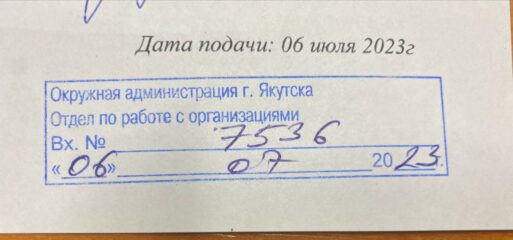 Дата подачи: 06 июля 2023г
Окружная администрация г. Якутска
Отдел по работе с организациями
Вх. № 7536
«06» 07 2023г.